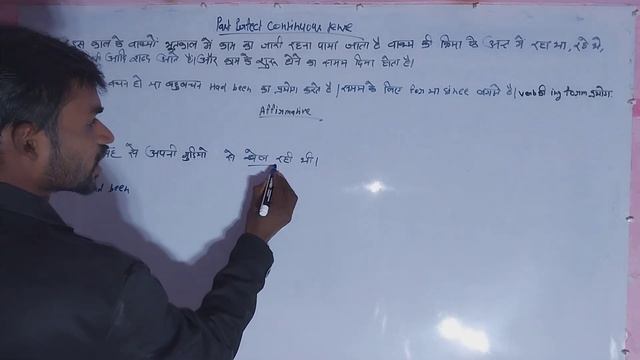 Past Perfect Continuous Tense
इस काल के वाक्यों भूतकाल में काम का जारी रहना पाया जाता है वाक्य की क्रिया के अन्त में रहा था, रहे थे,
आदि शब्द आते है। और काम के शुरू होने का समय दिया होता है।
वचन हो या बहुवचन Had been का प्रयोग करते है। समय के लिए for या since लगाते है। verb की ing form प्रयोग
Affirmative
से अपनी गुड़ियो से खेल रही थी।
had been